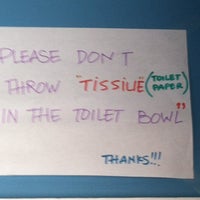 PLEASE DON'T
THROW "TISSUE (TOILET PAPER)
IN THE TOILET BOWL"
THANKS!!!